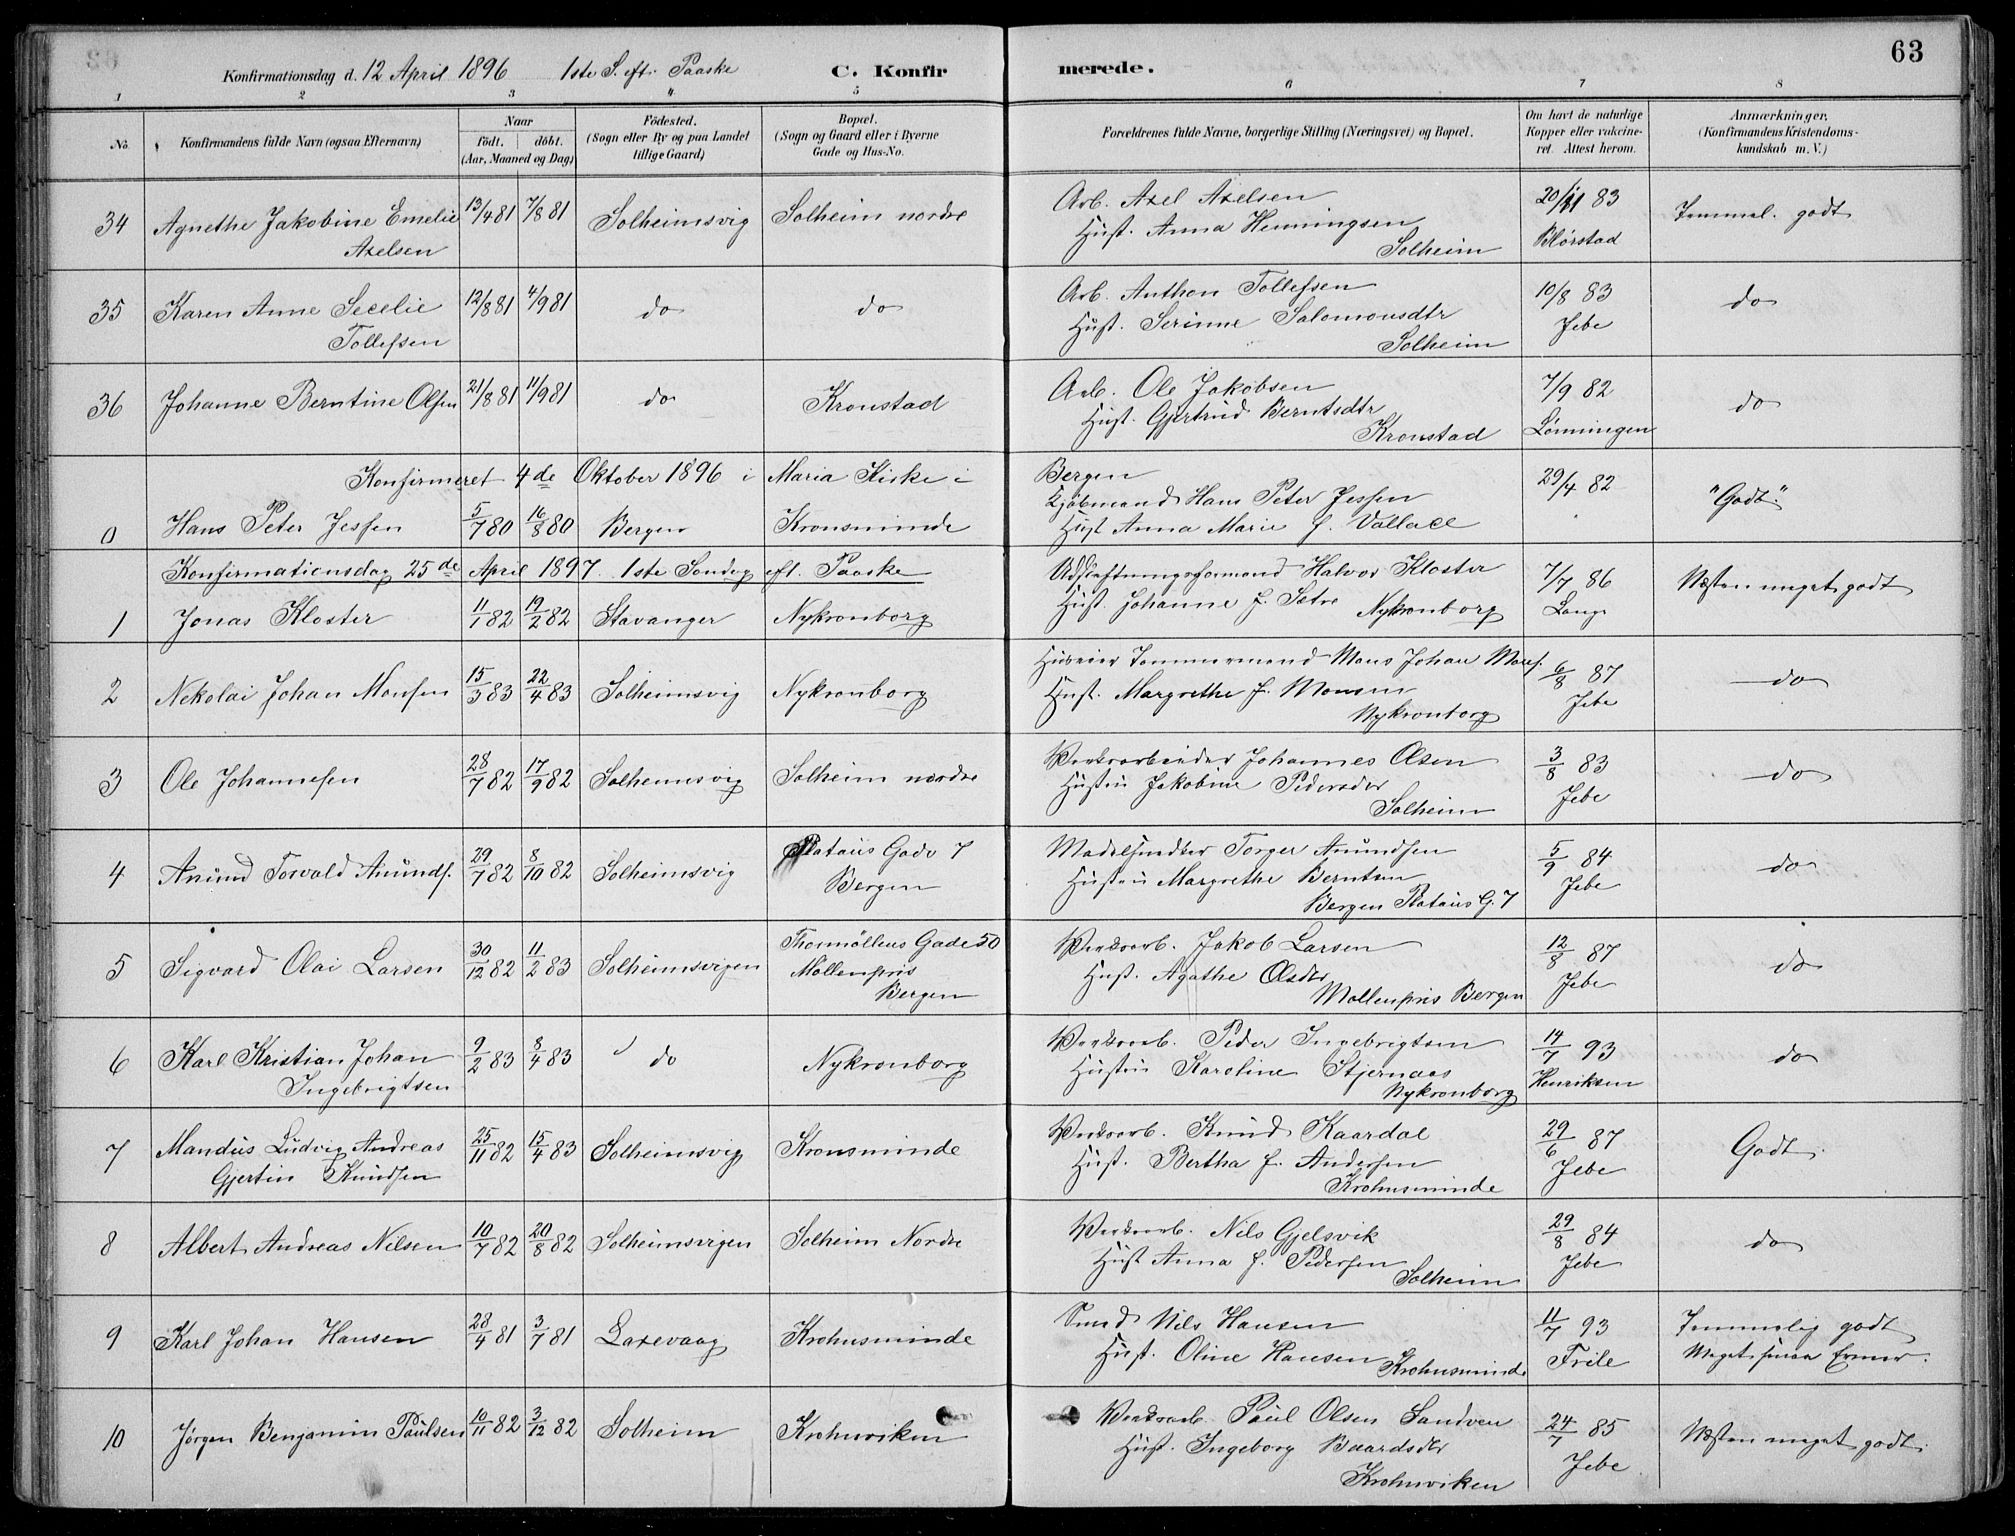 63
Konfirmationsdag d. 12 April 1896 1ste S. eft. Paaske C. Konfirmerede.
1 2 3 4 5 6 7 8
No. Konfirmandens fulde Navn (ogsaa Efternavn) Naar født. døbt. (Aar, Maaned og Dag) Fødested. (Sogn eller By og paa Landet tillige Gaard) Bopæl. (Sogn og Gaard eller i Byerne Gade og Hus-No. Forældrenes fulde Navne, borgerlige Stilling (Næringsvei) og Bopæl. Om havt de naturlige Kopper eller vakcineret. Attest herom. Anmærkninger. (Konfirmandens Kristendomskundskab m. V.)
34 Agnethe Jakobine Emelie 13/4 81 7/8 81 Solheimsvig Solheim nordre Arb. Axel Axelsen 20/11 83 Temmel. godt
Axelsen Hust. Anna Henningsen Blørstad
Solheim
35 Karen Anne Secelie 12/8 81 4/9 81 do do Arb. Anthon Tollefsen 10/8 83 do
Tollefsen Hust. Serinne Salomonsdtr Jebe
Solheim
36 Johanne Berntine Olsen 21/8 81 11/9 81 do Kronstad Arb. Ole Jakobsen 7/9 82 do
Hust. Gjertrud Berntsdtr Lønningen
Kronstad
Konfirmeret 4de Oktober 1896 i Maria Kirke i Bergen
0 Hans Peter Jessen 5/7 80 16/8 80 Bergen Kronsminde Kjøbmand Hans Peter Jessen 29/4 82 "Godt."
Hust Anna Marie f. Vallace
Konfirmationsdag 25de April 1897. 1ste Søndag eft. Paaske
1 Jonas Kloster 11/1 82 19/2 82 Stavanger Nykronborg Udskiftningsformand Halvor Kloster 7/7 86 Næsten meget godt
Hust. Johanne f. Sætre Nykronborg Lange
2 Nekolai Johan Monsen 15/3 83 22/4 83 Solheimsvig Nykronborg Huseier Tømmermand Mons Johan Mons. 6/8 87 do
Hust. Margrethe f. Monsen Jebe
Nykronborg
3 Ole Johannesen 28/7 82 17/9 82 Solheimsvig Solheim nordre Verksarbeider Johannes Olsen 3/8 83 do
Hustru Jakobine Pedersdtr Jebe
Solheim
4 Anund Torvald Anunds. 29/7 82 8/10 82 Solheimsvig Plataus Gade 7 Modelsnedker Torger Anundsen 5/9 84 do
Bergen Hustru Margrethe Berntsen Jebe
Bergen Plataus G. 7
5 Sigvard Olai Larsen 30/12 82 11/2 83 Solheimsvigen Thormøllens Gade 50 Verksarb. Jakob Larsen 12/8 87 do
Møllenpris Hust. Agathe Olsdtr Jebe
Bergen Møllenpris Bergen
6 Karl Kristian Johan 9/2 83 8/4 83 do Nykronborg Verksarb. Peder Ingebrigtsen 14/7 93 do
Ingebrigtsen Hustru Karoline Stjernaas Henriksen
Nykronborg
7 Mandus Ludvig Andreas 25/11 82 15/4 83 Solheimsvig Kronsminde Verksarb. Knud Kaardal 29/6 87 Godt
Gjertin Knudsen Hust. Bertha f. Andersen Jebe
Krohnsminde
8 Albert Andreas Nilsen 10/7 82 20/8 82 Solheimsvigen Solheim Nordre Verksarb. Nils Gjelsvik 29/8 84 do
Hust Anna f. Pedersen Jebe
Solheim
9 Karl Johan Hansen 28/4 81 3/7 81 Laxevaag Krohnsminde Smed Nils Hansen 11/7 93 Temmelig godt
Hust. Oline Hansen Krohnsminde Friele Meget smaa Evner.
10 Jørgen Benjamin Paulsen 10/11 82 3/12 82 Solheim Krohnviken Verksarb. Paul Olsen Sandven 24/7 85 Næsten meget godt.
Hust. Ingeborg Baardsdtr Jebe
Krohnviken